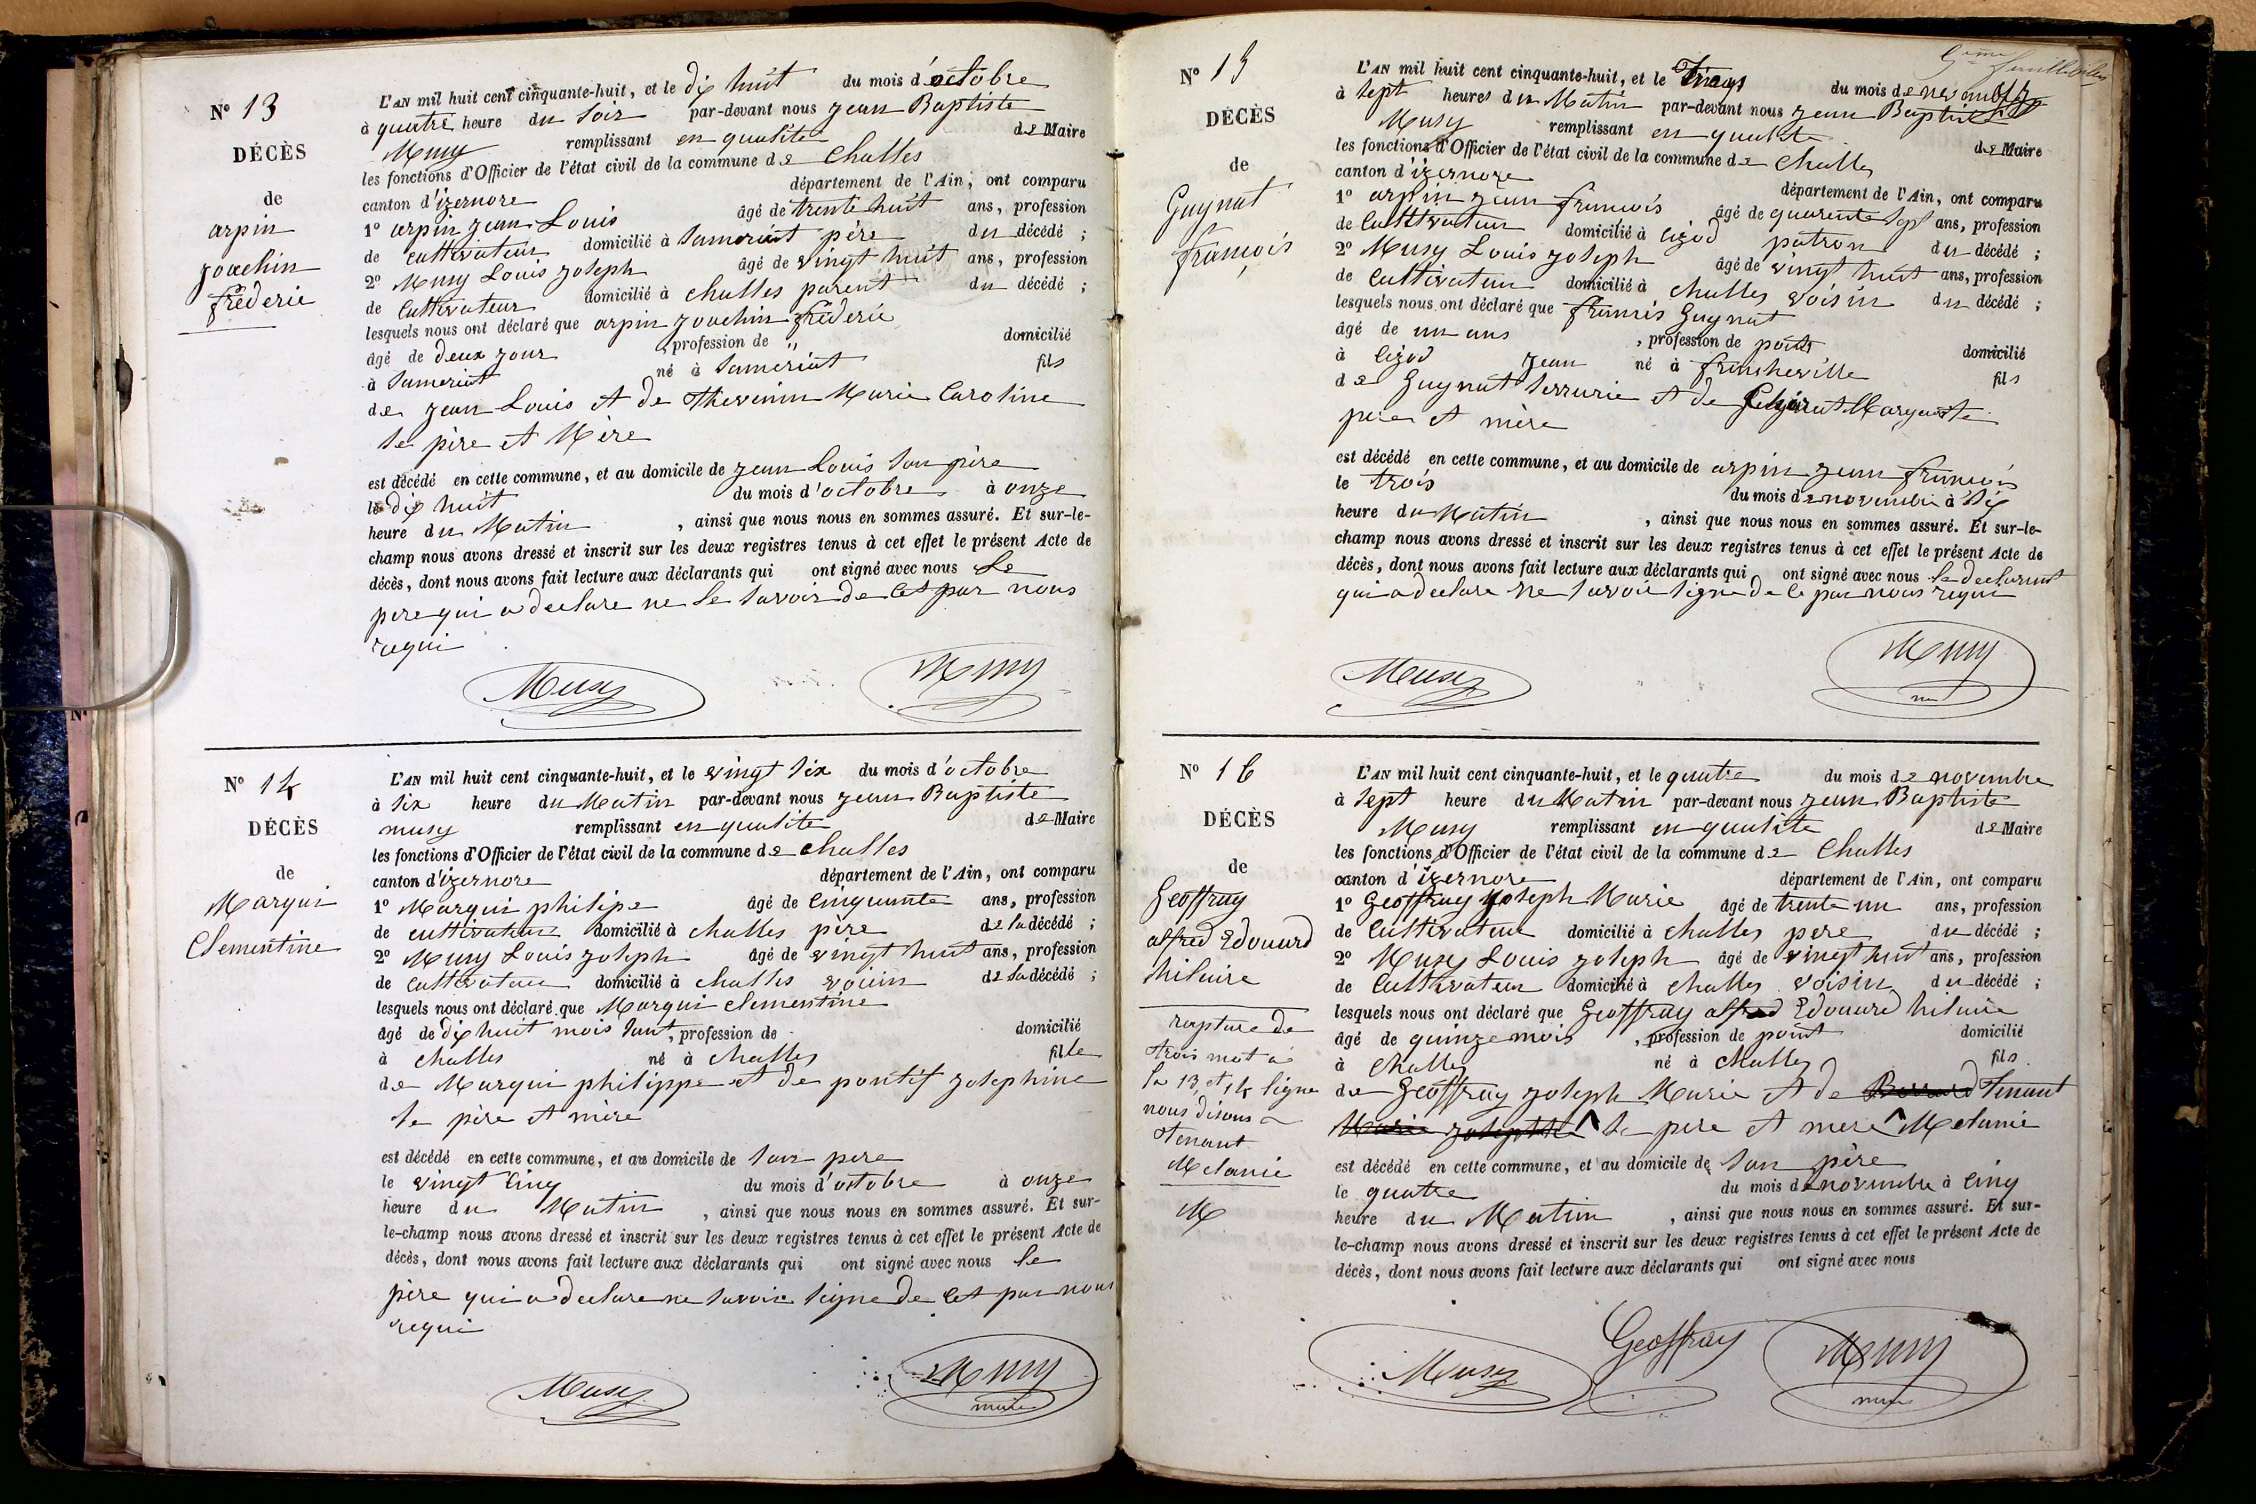 N° 13
DÉCÈS
de
arpin
jouchin
fréderic
L'AN mil huit cent cinquante-huit, et le dix huit du mois d'octobre
à quatre heure du soir par-devant nous jean Baptiste
Musy remplissant en qualité de Maire
les fonctions d'Officier de l'état civil de la commune de Challes
canton d'izernore département de l'Ain, ont comparu
1° arpin jean Louis âgé de trente huit ans, profession
de cultivateur domicilié à Samoriat père du décédé ;
2° Musy Louis joseph âgé de vingt huit ans, profession
de cultivateur domicilié à challes parent du décédé ;
lesquels nous ont déclaré que arpin jouchin fréderic
âgé de deux jour , profession de " domicilié
à Samoriat né à Samoriat fils
de jean Louis et de Thevenin Marie Caroline
se père et Mère
est décédé en cette commune, et au domicile de jean Louis son père
le dix huit du mois d'octobre à onze
heure du Matin , ainsi que nous nous en sommes assuré. Et sur-le-
champ nous avons dressé et inscrit sur les deux registres tenus à cet effet le présent Acte de
décès, dont nous avons fait lecture aux déclarants qui ont signé avec nous Le
pere qui a declare ne le savoir de Cet par nous
requi
Musy
Musy
N° 14
DÉCÈS
de
Marqui
Clementine
L'AN mil huit cent cinquante-huit, et le vingt six du mois d'octobre
à six heure du Matin par-devant nous jean Baptiste
musy remplissant en qualite de Maire
les fonctions d'Officier de l'état civil de la commune de challes
canton d'izernore département de l'Ain, ont comparu
1° Marqui philipe âgé de cinquante ans, profession
de cultivateur domicilié à challes père de la décédé ;
2° Musy Louis joseph âgé de vingt huit ans, profession
de cultivateur domicilié à challes voisin de la décédé ;
lesquels nous ont déclaré que Marqui clementine
âgé de dix huit mois sant, profession de domicilié
à challes né à challes fille
de Marqui philippe et de pontif josephine
se père et mère
est décédé en cette commune, et au domicile de son pere
le vingt cinq du mois d'octobre à onze
heure du Matin , ainsi que nous nous en sommes assuré. Et sur-
le-champ nous avons dressé et inscrit sur les deux registres tenus à cet effet le présent Acte de
décès, dont nous avons fait lecture aux déclarants qui ont signé avec nous le
père qui a declare ne savoir signe de Cet par nous
requi
Musy
Musy
maire
N° 15
DÉCÈS
de
Guynat
francois
L'AN mil huit cent cinquante-huit, et le du mois de novembre
à sept heures du Matin par-devant nous jean Baptiste
Musy remplissant en qualite de Maire
les fonctions d'Officier de l'état civil de la commune de Challes
canton d'izernore département de l'Ain, ont comparu
1° arpin jean francois âgé de quarente sept ans, profession
de Cultivateur domicilié à cizod patron du décédé ;
2° Musy Louis joseph âgé de vingt huit ans, profession
de Cultivateur domicilié à challes voisin du décédé ;
lesquels nous ont déclaré que francois Guynat
âgé de un ans , profession de point domicilié
à cizod jean né à francheville fils
de Guynat serrurie et de Marguerite
père et mère
est décédé en cette commune, et au domicile de arpin jean francois
le trois du mois de novembre à six
heure du Matin , ainsi que nous nous en sommes assuré. Et sur-le-
champ nous avons dressé et inscrit sur les deux registres tenus à cet effet le présent Acte de
décès, dont nous avons fait lecture aux déclarants qui ont signé avec nous le declarent
qui a declare ne savoir signe de Ce par nous requi
Musy
Musy
N° 16
DÉCÈS
de
Geoffray
alfred Edouard
hilaire
rapture de
trois mot a
la 13 et 14 ligne
nous disons
tenant
Melanie
M
L'AN mil huit cent cinquante-huit, et le quatre du mois de novembre
à sept heure du Matin par-devant nous jean Baptiste
Musy remplissant en qualite de Maire
les fonctions d'Officier de l'état civil de la commune de Challes
canton d'izernore département de l'Ain, ont comparu
1° Geoffray joseph Marie âgé de trente un ans, profession
de Cultivateur domicilié à challes pere du décédé ;
2° Musy Louis joseph âgé de vingt huit ans, profession
de Cultivateur domicilié à challes voisin du décédé ;
lesquels nous ont déclaré que Geoffray alfred Edouard hilaire
âgé de quinze mois , profession de point domicilié
à Challes né à Challes fils
de Geoffray joseph Marie et de tenant
Marie josephte se pere et mere Melanie
est décédé en cette commune, et au domicile de son père
le quatre du mois de novembre à cinq
heure du Matin , ainsi que nous nous en sommes assuré. Et sur-
le-champ nous avons dressé et inscrit sur les deux registres tenus à cet effet le présent Acte de
décès, dont nous avons fait lecture aux déclarants qui ont signé avec nous
Musy
Geoffray
Musy
maire